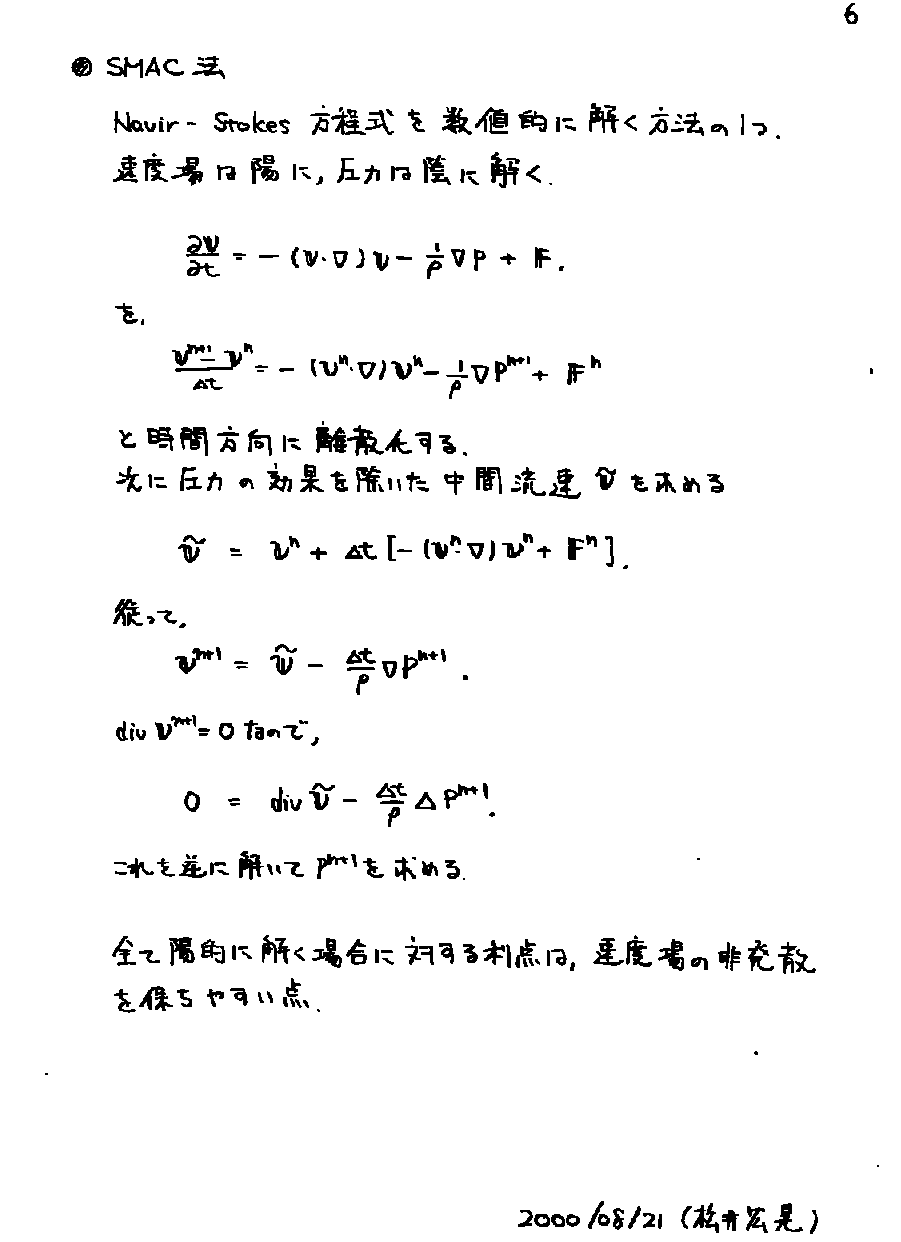 6
◎ SMAC 法
Navir - Stokes 方程式 を 数値的に 解く方法の1つ.
速度場は陽に, 圧力は陰に解く.
∂𝕧/∂t = - (𝕧·∇)𝕧 - 1/ρ ∇P + 𝔽.
を,
(𝕧^{n+1} - 𝕧^n)/Δt = - (𝕧^n·∇)𝕧^n - 1/ρ ∇P^{n+1} + 𝔽^n
と時間方向に離散化する.
次に圧力の効果を除いた中間流速 𝕧̃ を求める
𝕧̃ = 𝕧^n + Δt [- (𝕧^n·∇)𝕧^n + 𝔽^n].
従って,
𝕧^{n+1} = 𝕧̃ - Δt/ρ ∇P^{n+1}.
div 𝕧^{n+1} = 0 なので,
0 = div 𝕧̃ - Δt/ρ Δ P^{n+1}.
これを逆に解いて P^{n+1} を求める.
全て陽的に解く場合に対する利点は, 速度場の非発散
を保ちやすい点.
2000/08/21 (松井宏晃)